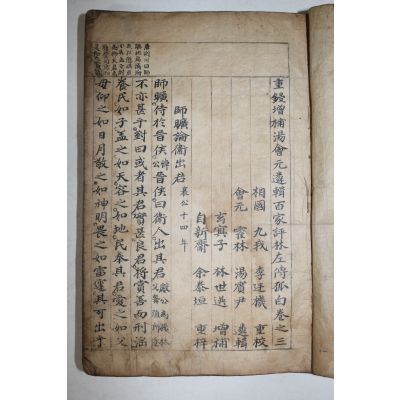 重鋟增補湯會元遴輯百家評林左傳狐白卷之三
相國 九我 李廷機 重校
會元 霍林 湯賓尹 遴輯
林世選 增補
自新齋 余泰垣 重梓
師曠論衛出君 襄公十四年
師曠侍於晉侯 悼公 晉侯曰衛人出其君
不亦甚乎對曰或者其君實甚良君將賞善而刑淫
養民如子蓋之如天容之如地民奉其君愛之如父
母仰之如日月敬之如神明畏之如雷霆其可出乎